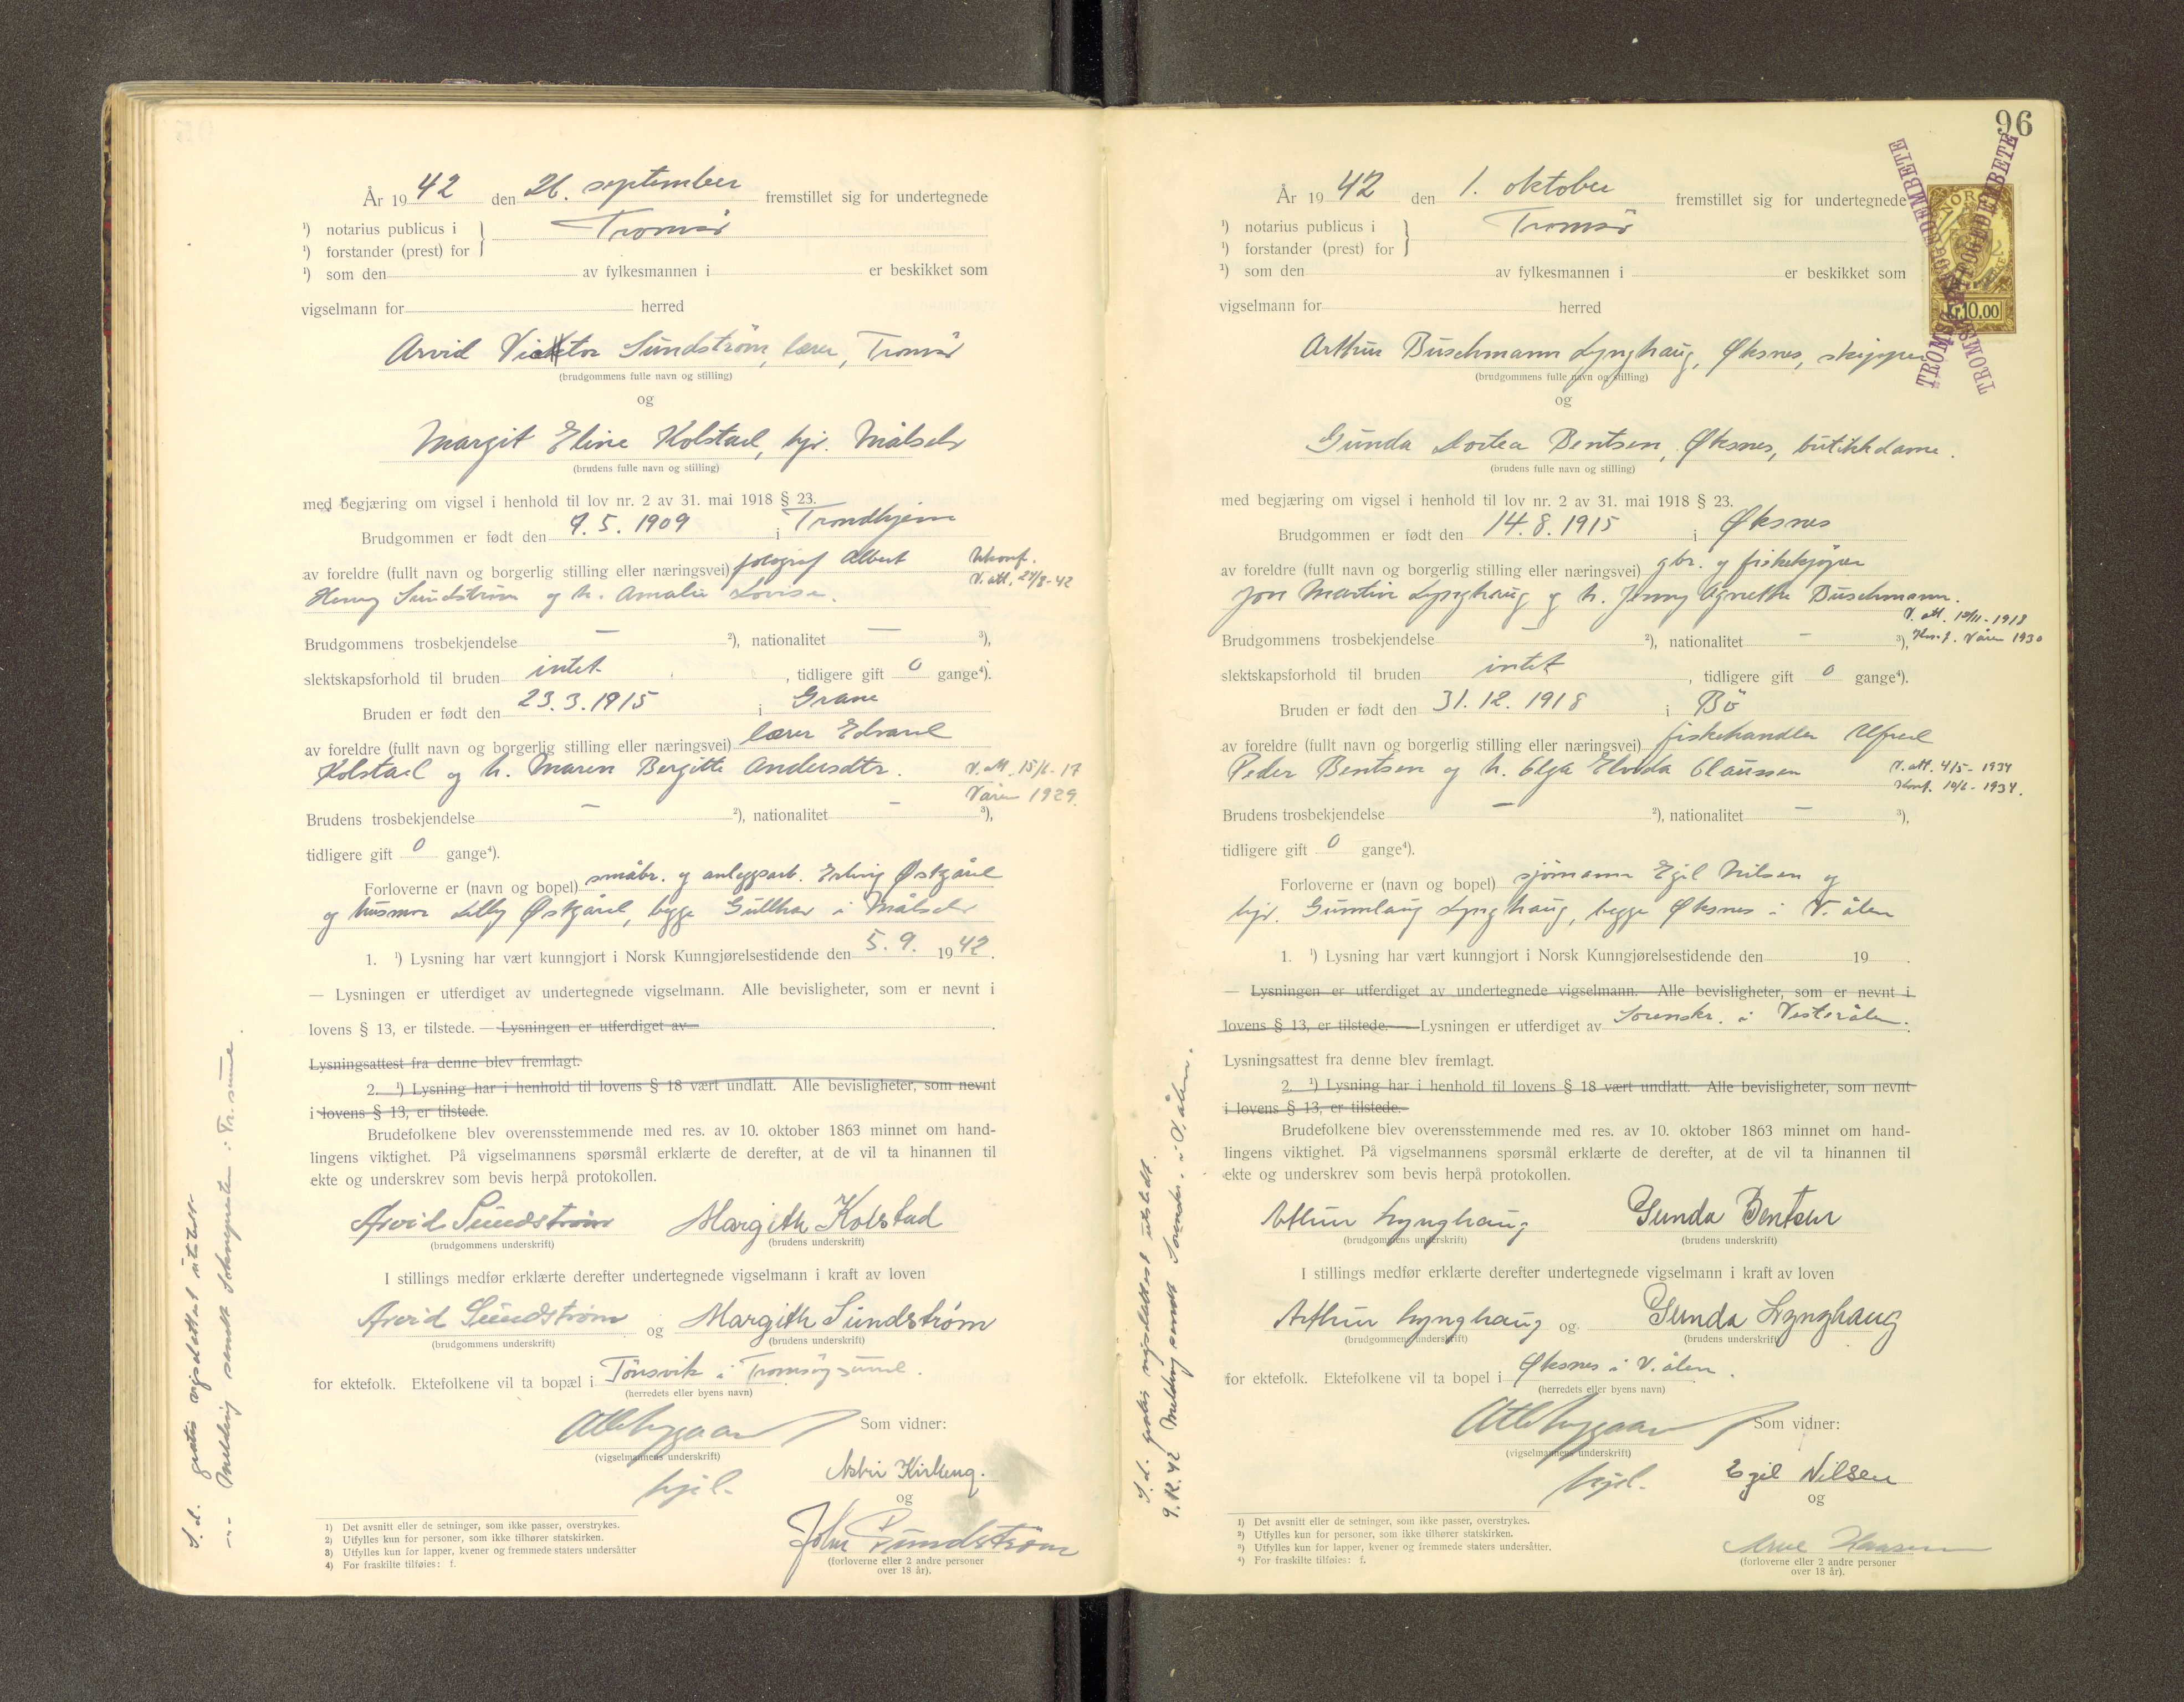 År 1942 den 26. september fremstillet sig for undertegnede
¹) notarius publicus i } Tromsö
¹) forstander (prest) for
¹) som den av fylkesmannen i er beskikket som
vigselmann for herred
Arvid Viktor Sundström, lærer, Tromsö
(brudgommens fulle navn og stilling)
og
Margit Eline Kolstad, hjv. Målselv
(brudens fulle navn og stilling)
med begjæring om vigsel i henhold til lov nr. 2 av 31. mai 1918 § 23.
Brudgommen er født den 9.5.1909 i Trondhjem
av foreldre (fullt navn og borgerlig stilling eller næringsvei) fotograf Albert
Henry Sundström og h. Amalie Lovise.
Ukonf.
V. att. 27/8-42
Brudgommens trosbekjendelse — ²), nationalitet — ³),
slektskapsforhold til bruden intet, tidligere gift 0 gange⁴).
Bruden er født den 23.3.1915 i Grane
av foreldre (fullt navn og borgerlig stilling eller næringsvei) lærer Edvard
Kolstad og h. Maren Bergitte Andersdtr.
V. att. 15/6-17
Våren 1929.
Brudens trosbekjendelse — ²), nationalitet — ³),
tidligere gift 0 gange⁴).
Forloverne er (navn og bopel) småbr. og anleggsarb. Erling Østgård
og husmor Lilly Østgård, begge Gullhav i Målselv
1. ¹) Lysning har vært kunngjort i Norsk Kunngjørelsestidende den 5.9. 1942.
— Lysningen er utferdiget av undertegnede vigselmann. Alle bevisligheter, som er nevnt i
lovens § 13, er tilstede. — Lysningen er utferdiget av
Lysningsattest fra denne blev fremlagt.
2. ¹) Lysning har i henhold til lovens § 18 vært undlatt. Alle bevisligheter, som nevnt
i lovens § 13, er tilstede.
Brudefolkene blev overensstemmende med res. av 10. oktober 1863 minnet om hand-
lingens viktighet. På vigselmannens spørsmål erklærte de derefter, at de vil ta hinannen til
ekte og underskrev som bevis herpå protokollen.
Arvid Sundstrøm Margith Kolstad
(brudgommens underskrift) (brudens underskrift)
I stillings medfør erklærte derefter undertegnede vigselmann i kraft av loven
Arvid Sundstrøm og Margith Sundstrøm
(brudgommens underskrift) (brudens underskrift)
for ektefolk. Ektefolkene vil ta bopæl i Tönsvik i Tromsöysund.
(herredets eller byens navn)
Som vidner:
(vigselmannens underskrift)
Astri Kirkeng.
og
John Sundstrøm
(forloverne eller 2 andre personer
over 18 år).
1) Det avsnitt eller de setninger, som ikke passer, overstrykes.
2) Utfylles kun for personer, som ikke tilhører statskirken.
3) Utfylles kun for lapper, kvener og fremmede staters undersåtter
4) For fraskilte tilføies: f.
S.d. gratis vigselattest utstedt
—"— Melding sendt Soknepresten i Tr.sund.
96
TROMSØ BYFOGEDEMBETE
TROMSØ BYFOGEDEMBETE
NORGE
Kr 10.00
År 1942 den 1. oktober fremstillet sig for undertegnede
¹) notarius publicus i } Tromsö
¹) forstander (prest) for
¹) som den av fylkesmannen i er beskikket som
vigselmann for herred
Arthur Buschmann Lynghaug, Øksnes, skipper
(brudgommens fulle navn og stilling)
og
Gunda Dortea Bentsen, Øksnes, butikkdame.
(brudens fulle navn og stilling)
med begjæring om vigsel i henhold til lov nr. 2 av 31. mai 1918 § 23.
Brudgommen er født den 14.8.1915 i Øksnes
av foreldre (fullt navn og borgerlig stilling eller næringsvei) gbr. og fiskekjøper
Jon Martin Lynghaug og h. Jenny Agnethe Buschmann.
V. att. 18/11-1918
Konf. Våren 1930
Brudgommens trosbekjendelse — ²), nationalitet — ³),
slektskapsforhold til bruden intet, tidligere gift 0 gange⁴).
Bruden er født den 31.12.1918 i Bö
av foreldre (fullt navn og borgerlig stilling eller næringsvei) fiskehandler Alfred
Peder Bentsen og h. Olga Elvida Claussen
V. att. 4/5-1934
Konf. 10/6-1934.
Brudens trosbekjendelse — ²), nationalitet — ³),
tidligere gift 0 gange⁴).
Forloverne er (navn og bopel) sjömann Egil Nilsen og
hjv. Gunnlaug Lynghaug, begge Øksnes i V.ålen
1. ¹) Lysning har vært kunngjort i Norsk Kunngjørelsestidende den 19 .
— Lysningen er utferdiget av undertegnede vigselmann. Alle bevisligheter, som er nevnt i
lovens § 13, er tilstede. — Lysningen er utferdiget av Sorenskr. i Vesterålen.
Lysningsattest fra denne blev fremlagt.
2. ¹) Lysning har i henhold til lovens § 18 vært undlatt. Alle bevisligheter, som nevnt
i lovens § 13, er tilstede.
Brudefolkene blev overensstemmende med res. av 10. oktober 1863 minnet om hand-
lingens viktighet. På vigselmannens spørsmål erklærte de derefter, at de vil ta hinannen til
ekte og underskrev som bevis herpå protokollen.
Arthur Lynghaug Gunda Bentsen
(brudgommens underskrift) (brudens underskrift)
I stillings medfør erklærte derefter undertegnede vigselmann i kraft av loven
Arthur Lynghaug og Gunda Lynghaug
(brudgommens underskrift) (brudens underskrift)
for ektefolk. Ektefolkene vil ta bopel i Øksnes i V.ålen.
(herredets eller byens navn)
Som vidner:
(vigselmannens underskrift)
Egil Nilsen
og
Arne Hansen
(forloverne eller 2 andre personer
over 18 år).
1) Det avsnitt eller de setninger, som ikke passer, overstrykes.
2) Utfylles kun for personer, som ikke tilhører statskirken.
3) Utfylles kun for lapper, kvener og fremmede staters undersåtter.
4) For fraskilte tilføies: f.
S.d. gratis vigselattest utstedt.
9.12.42 Melding sendt Sorenskr. i V.ålen.